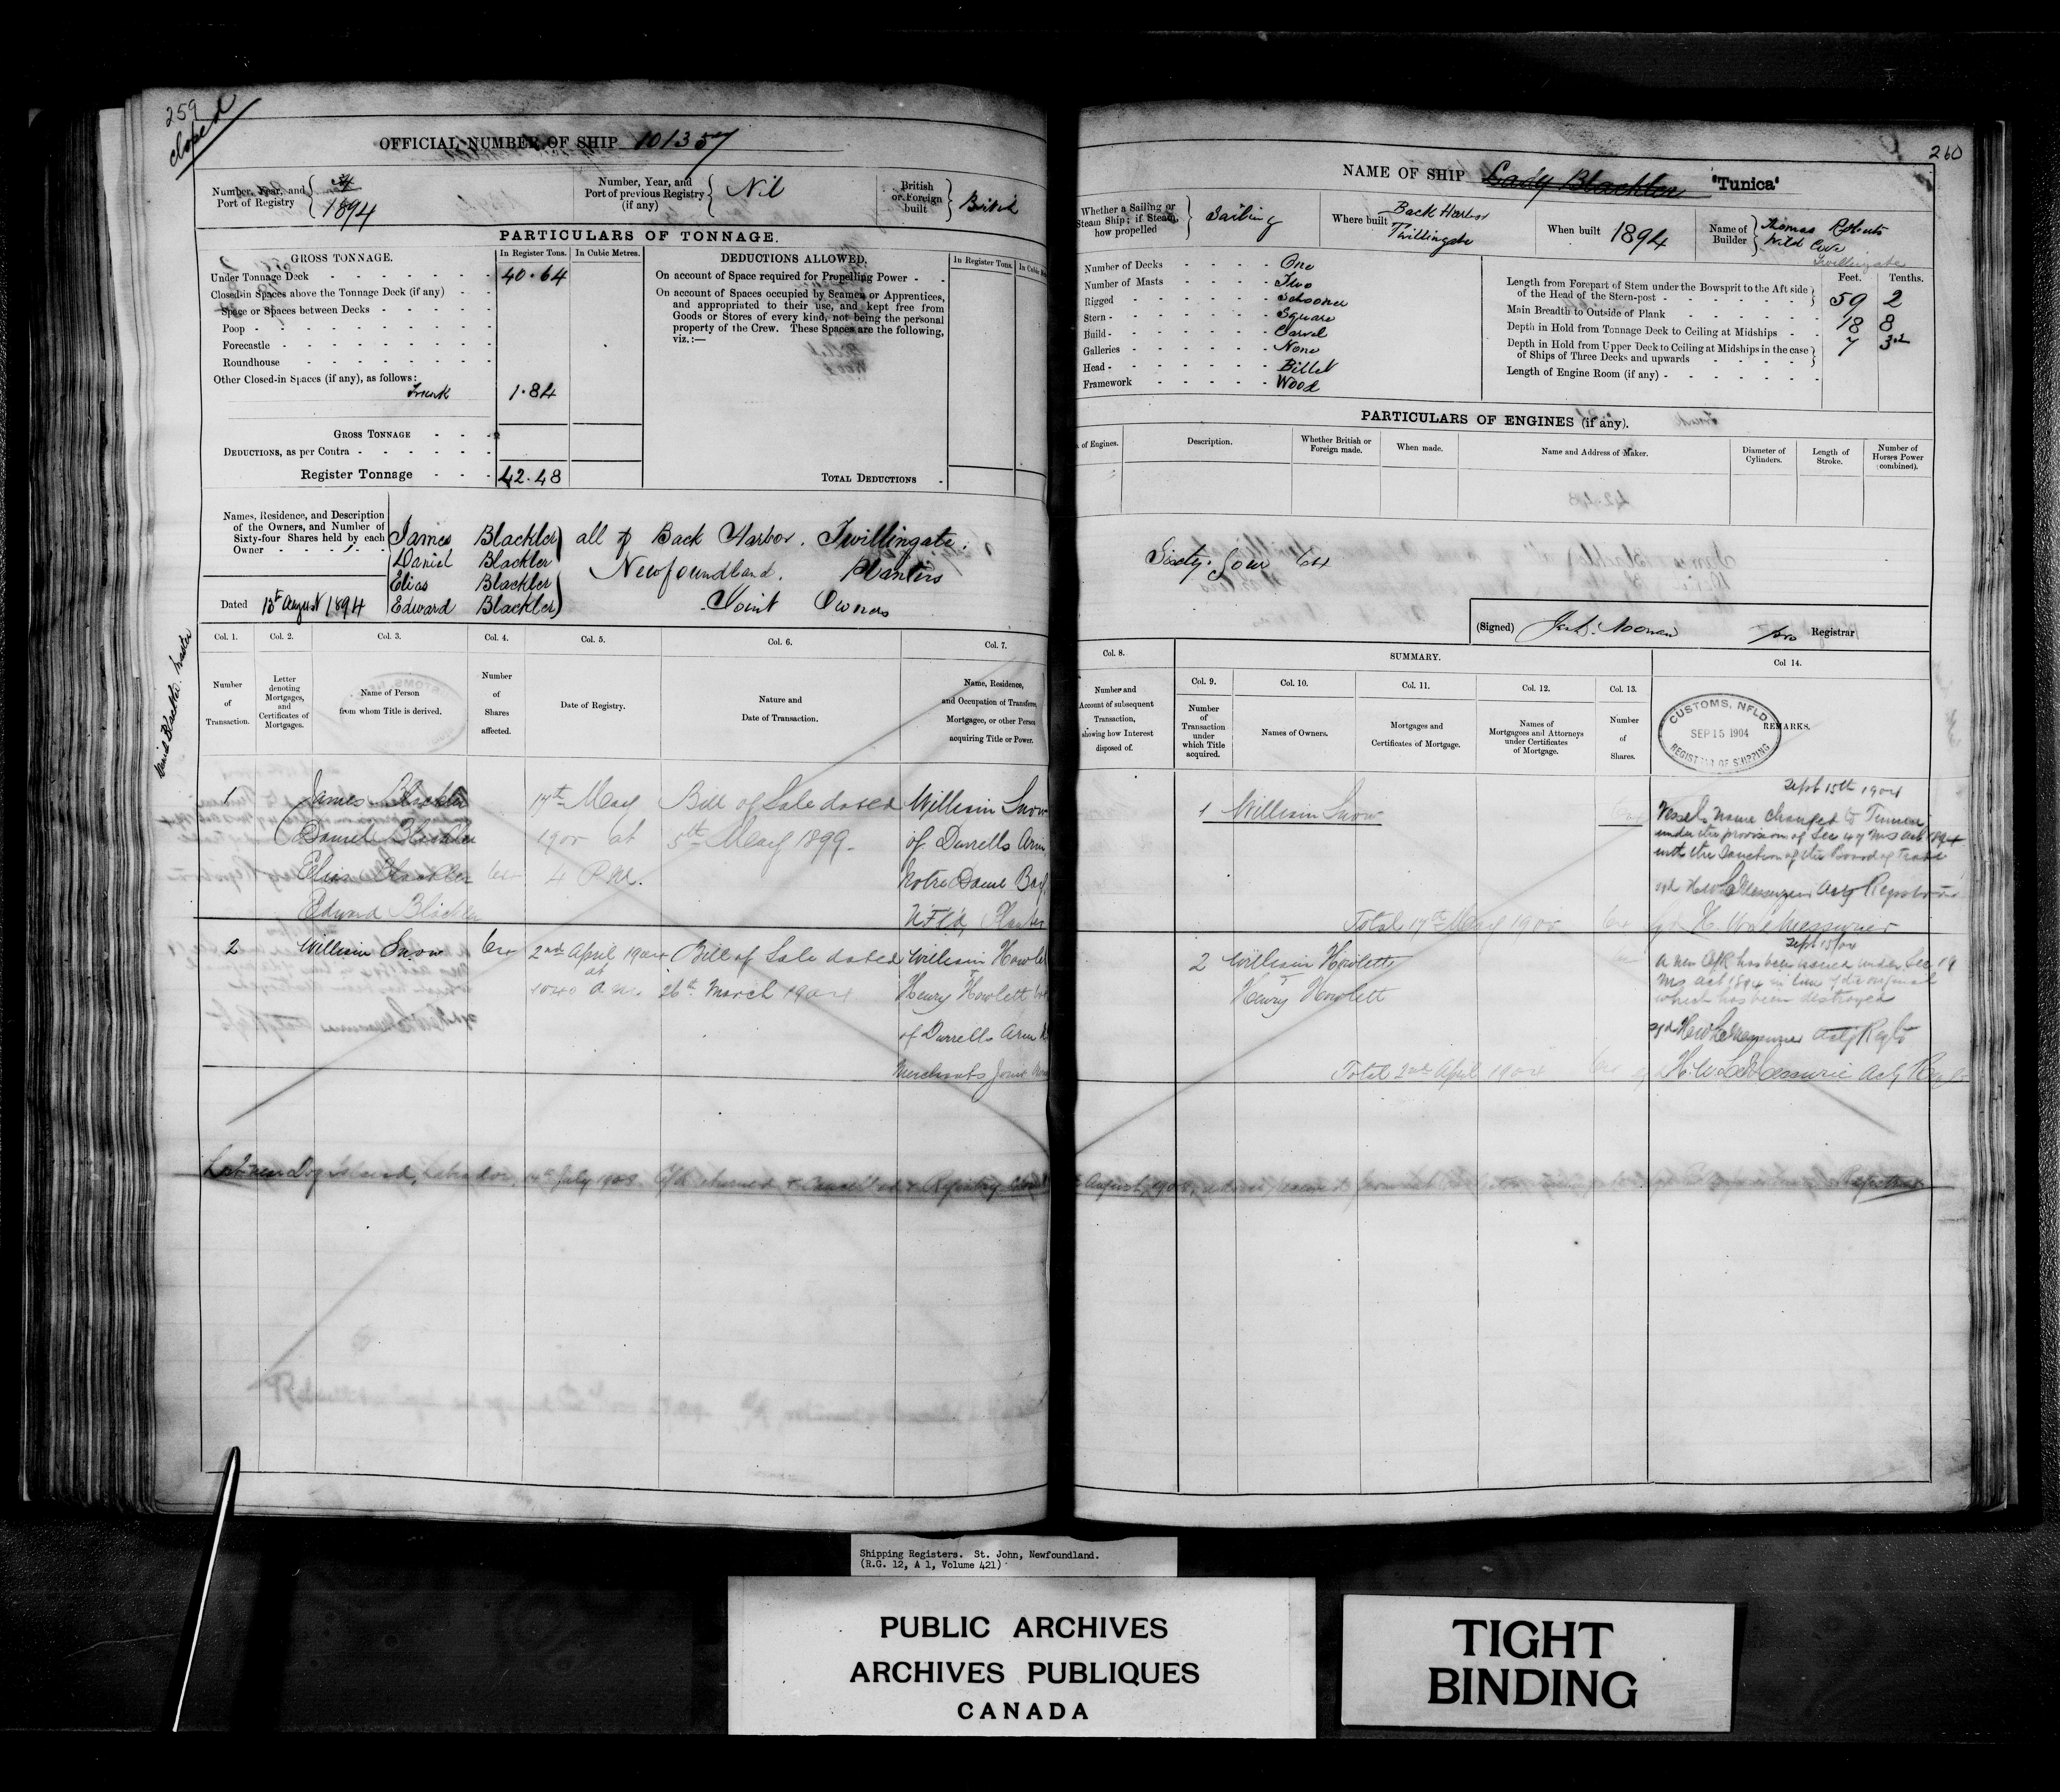 259
closed
OFFICIAL NUMBER OF SHIP 101357
Number, Year, and Port of Registry
1894
Number, Year, and Port of previous Registry (if any)
Nil
British or Foreign built
British
PARTICULARS OF TONNAGE.
GROSS TONNAGE.
In Register Tons.
In Cubic Metres.
Under Tonnage Deck 40.64
Closed-in Spaces above the Tonnage Deck (if any)
Space or Spaces between Decks
Poop
Forecastle
Roundhouse
Other Closed-in Spaces (if any), as follows:
Trunk 1.84
GROSS TONNAGE
DEDUCTIONS, as per Contra
Register Tonnage 42.48
DEDUCTIONS ALLOWED.
In Register Tons.
On account of Space required for Propelling Power
On account of Spaces occupied by Seamen or Apprentices,
and appropriated to their use, and kept free from
Goods or Stores of every kind, not being the personal
property of the Crew. These Spaces are the following,
viz.:—
TOTAL DEDUCTIONS
Names, Residence, and Description
of the Owners, and Number of
Sixty-four Shares held by each
Owner
James Blackler all of Back Harbor. Twillingate.
Daniel Blackler Newfoundland. Planters
Elias Blackler
Edward Blackler Joint Owners
Dated 13th August 1894
Col. 1.
Number of Transaction.
Col. 2.
Letter denoting Mortgages, and Certificates of Mortgages.
Col. 3.
Name of Person from whom Title is derived.
Col. 4.
Number of Shares affected.
Col. 5.
Date of Registry.
Col. 6.
Nature and Date of Transaction.
Col. 7.
Name, Residence, and Occupation of Transferee, Mortgagee, or other Person acquiring Title or Power.
1 James Blackler 17th May Bill of Sale dated William Snow
Daniel Blackler 1900 at 5th May 1899. of Durrells Arm
Elias Blackler 4 P.M. Notre Dame Bay
Edward Blackler Nfld, Planter
2 William Snow 2nd April 1904 Bill of Sale dated William Howlett
at
1040 a.m. 26th March 1904 Henry Howlett
of Durrells Arm
Merchants Joint
Lost near Dog Island, Labrador, July 1908
260
NAME OF SHIP Lady Blackler "Tunica"
Whether a Sailing or Steam Ship; if Steam, how propelled
Sailing
Where built
Back Harbor
Twillingate
When built 1894
Name of Builder
Thomas Roberts
Wild Cove
Twillingate
Number of Decks One
Number of Masts Two
Rigged Schooner
Stern Square
Build Carvel
Galleries None
Head Billet
Framework Wood
Feet. Tenths.
Length from Forepart of Stem under the Bowsprit to the Aft side
of the Head of the Stern-post 59 2
Main Breadth to Outside of Plank 18 8
Depth in Hold from Tonnage Deck to Ceiling at Midships 7 3.2
Depth in Hold from Upper Deck to Ceiling at Midships in the case
of Ships of Three Decks and upwards
Length of Engine Room (if any)
PARTICULARS OF ENGINES (if any).
of Engines.
Description.
Whether British or Foreign made.
When made.
Name and Address of Maker.
Diameter of Cylinders.
Length of Stroke.
Number of Horses Power (combined).
Sixty four 64
(Signed) pro Registrar
Col. 8.
Number and Account of subsequent Transaction, showing how Interest disposed of.
SUMMARY.
Col. 9.
Number of Transaction under which Title acquired.
Col. 10.
Names of Owners.
Col. 11.
Mortgages and Certificates of Mortgage.
Col. 12.
Names of Mortgagees and Attorneys under Certificates of Mortgage.
Col. 13.
Number of Shares.
Col 14.
REMARKS.
CUSTOMS, NFLD
SEP 15 1904
REGISTRAR OF SHIPPING
1 William Snow
Sept 15th 1904
Vessel's name changed to Tunica
under the provision of Sec 47 MS Act 1894
with the Sanction of the Board of Trade
sgd H W LeMessurier Actg Registrar
Total 17th May 1900
H. W. LeMessurier
2 William Howlett
Henry Howlett
Sept 15/04
A new C/R has been issued under Sec 19
MS Act 1894 in lieu of the original
which has been destroyed
sgd H W LeMessurier Actg Regtr
Total 2nd April 1904
H. W. LeMessurier Actg
Registrar
Shipping Registers. St. John, Newfoundland.
(R.G. 12, A 1, Volume 421)
PUBLIC ARCHIVES
ARCHIVES PUBLIQUES
CANADA
TIGHT
BINDING